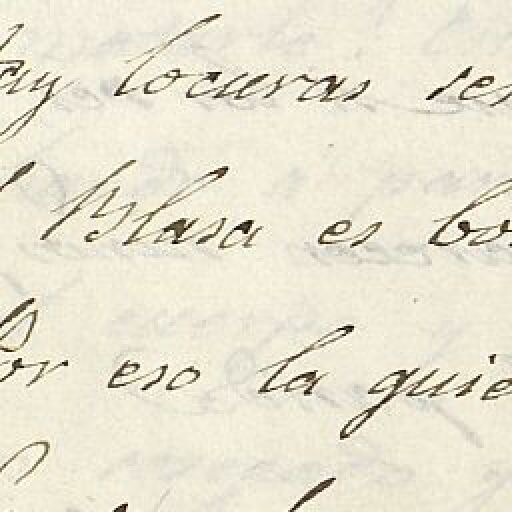 ay locuras ses
Blasa es bo
Por eso la guie